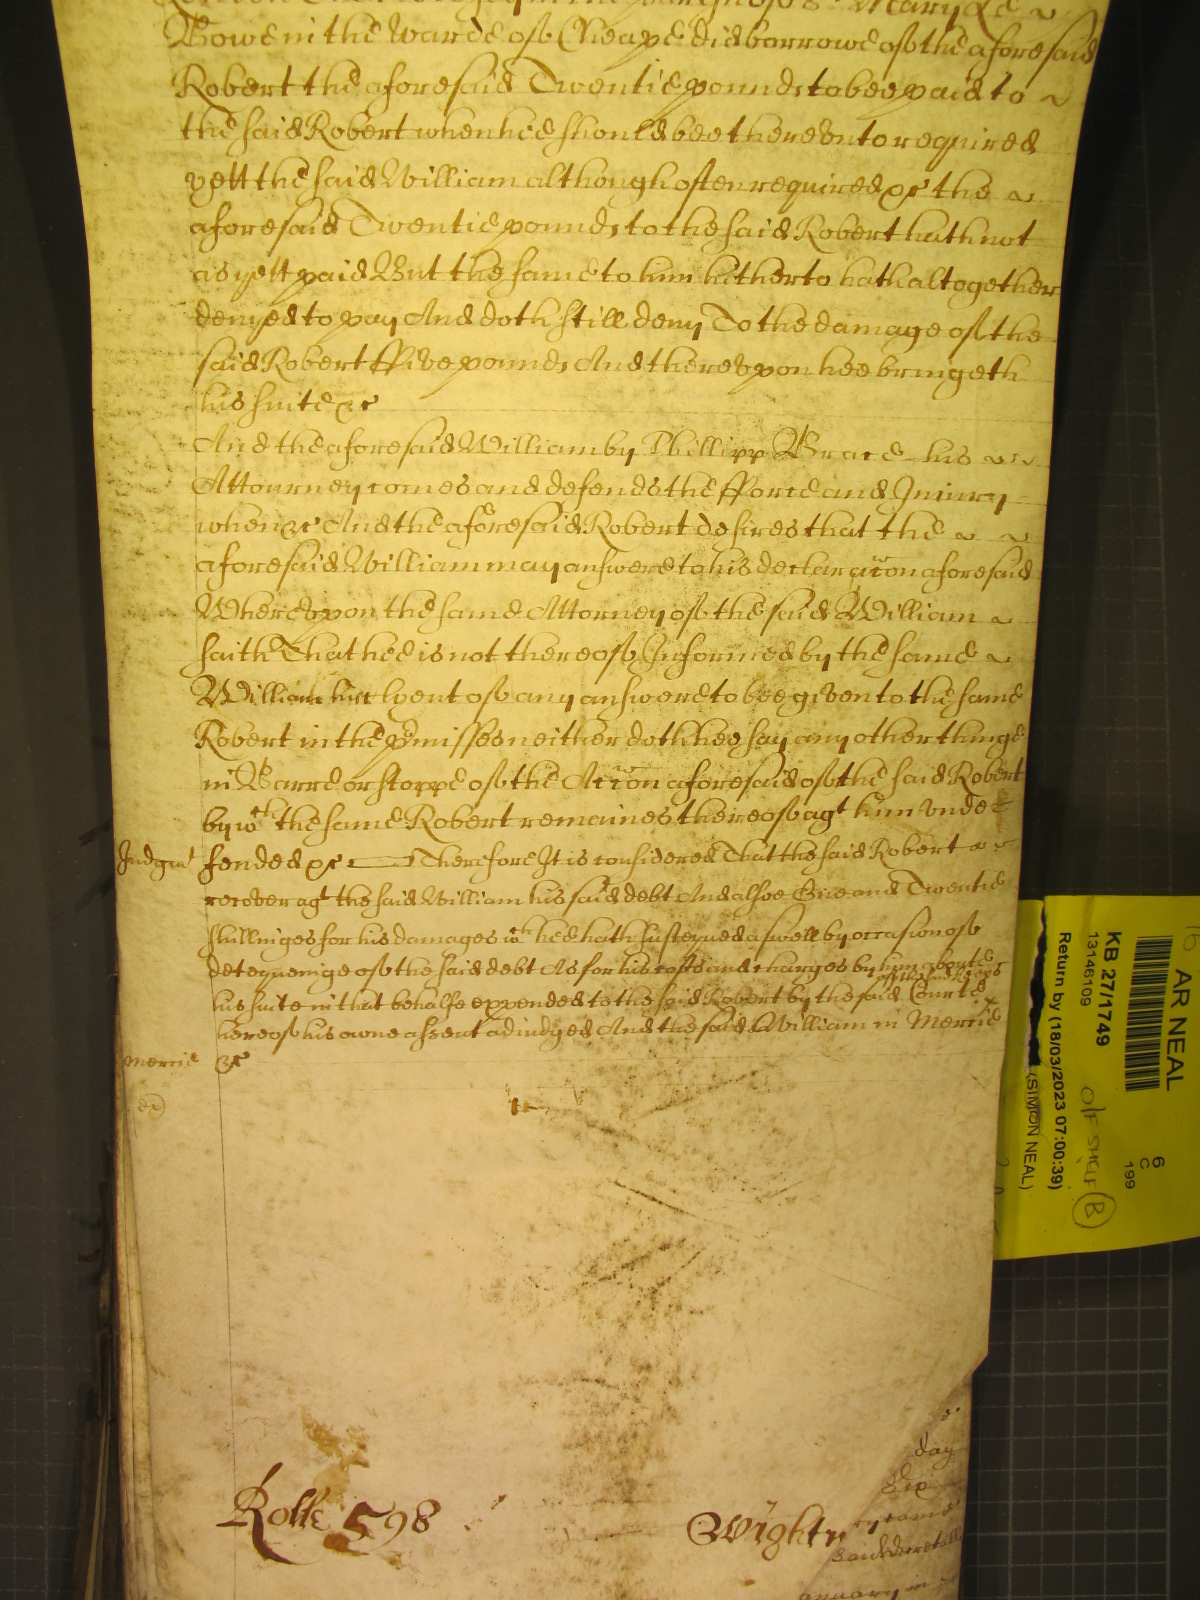 Bowe in the Warde of Cheape did borrowe of the aforesaid
Robert the aforesaid Twentie pounds to bee paid to
the said Robert when hee should bee therevnto required
yett the said William although often required &c the
aforesaid Twentie pounds to the said Robert hath not
as yett paid But the same to him hitherto hath altogether
denyed to pay And doth still deny To the damage of the
said Robert ffive pounds And therevpon hee bringeth
his suite &c
And the aforesaid William by Phillipp Brace his
Attourney comes and defends the fforce and Iniury
when &c And the aforesaid Robert desires that the
aforesaid William may answere to his declaracon aforesaid
Wherevpon the same Attorney of the said William
saith That hee is not thereof Informed by the same
William his Clyent or of any answere to bee given to the same
Robert in the pmisses neither doth hee say any other thinge
in Barre or stoppe of the Accon aforesaid of the said Robert
by wch the same Robert remaines thereof agt him vnde
Judgmt fended &c Therefore It is considered That the said Robert
recover agt the said William his said debt And alsoe One and Twentie
shillinges for his damages wch hee hath susteyned aswell by occasion of
deteyneinge of the said debt As for his costs and charges by him aboute
his suite in that behalfe expended to the said Robert by the said Courte
hereof his owne assent adiudged And the said William in Mercie
mercie &c
Rolle 598
Wightn
day
Six
AR NEAL
KB 27/1749
13146109
Return by (18/03/2023 07:00:39)
(SIMON NEAL)
O/F SHELF B
6
C
199